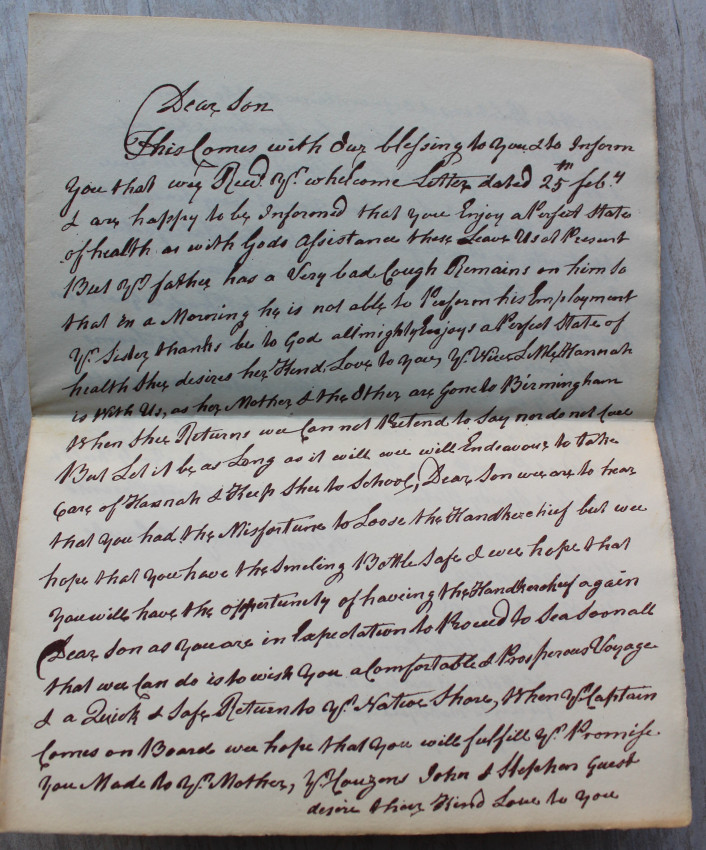 Dear Son
This Comes with Our blessing to you & to Inform
you that wey Recd. Yr. whelcome Letter dated 25th feby
& are happy to be Informed that you Enjoy a Perfect State
of health as with Gods Assistance these Leave Us at Present
But Yr father has a Very bad Cough Remains on him So
that in a Morning he is not able to Perform his Employment
Yr Sister thanks be to God allmighty Enjoys a Perfect State of
health She desires her Kind Love to you, Yr. Little Hannah
is With Us, as her Mother & the Other are Gone to Birmingham
When Shee Returns wee Can not Pretend to Say nor do not
But Let it be as Long as it will wee will Endeavour to take
Care of Hannah & Keep She to School, Dear Son wee are to hear
that you had the Misfortune to Loose the Handkerchief but wee
hope that you have the Smeling Bottle Safe & wee hope that
you will have the oppertunity of haveing the Handkerchief again
Dear Son as you are in Expectation to Proceed to Sea Soon all
that wee Can do is to wish you a Comfortable & Prosperous Voyage
& a Quick & Safe Return to Yr. Native Shore, When Yr Captain
Comes on Board wee hope that you will fulfill Yr. Promise
you Made to Yr. Mother, Yr. Couzens John & Stephen Guest
desire thier Kind Love to you